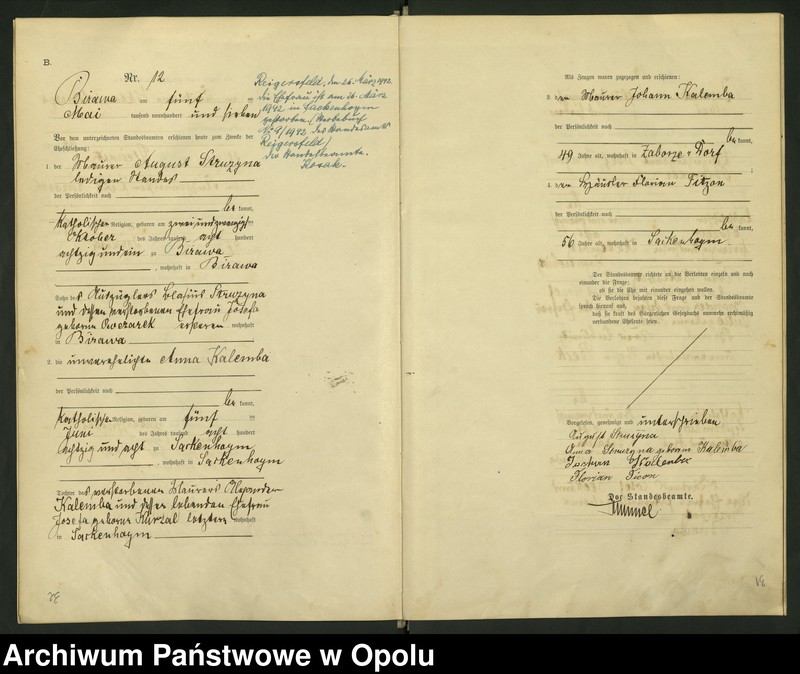 B.
Nr. 12
Birawa am fünf ten
Mai tausend neunhundert und sieben
Reigersfeld, den 26. März 1942.
die Ehefrau ist am 26. März
1942 in Sackenhoym
gestorben (Sterbebuch
Nr 9/1942 des Standesamts
Reigersfeld)
Der Standesbeamte.
Kosak.
Vor dem unterzeichneten Standesbeamten erschienen heute zum Zwecke der
Eheschließung:
1. der Maurer August Struzyna
ledigen Standes
der Persönlichkeit nach
be kannt,
katholischer Religion, geboren am zweiundzwanzigsten
Oktober des Jahres tausend acht hundert
achtzig und ein zu Birawa
, wohnhaft in Birawa
Sohn des Auszüglers Blasius Struzyna
und dessen verstorbenen Ehefrau Josefa
geborne Owczarek ersterer wohnhaft
in Birawa
2. die unverehelichte Anna Kalemba
der Persönlichkeit nach
be kannt,
katholischer Religion, geboren am fünf ten
Juni des Jahres tausend acht hundert
achtzig und acht zu Sackenhoym
, wohnhaft in Sackenhoym
Tochter des verstorbenen Maurers Alexander
Kalemba und dessen lebenden Ehefrau
Josefa geborne Kurzal letztere wohnhaft
in Sackenhoym
Als Zeugen waren zugezogen und erschienen:
3. der Maurer Johann Kalemba
der Persönlichkeit nach
be kannt,
49 Jahre alt, wohnhaft in Zaborze-Dorf
;
4. der Häusler Florian Titzon
der Persönlichkeit nach
be kannt,
56 Jahre alt, wohnhaft in Sackenhoym
Der Standesbeamte richtete an die Verlobten einzeln und nach
einander die Frage:
ob sie die Ehe mit einander eingehen wollen.
Die Verlobten bejahten diese Frage und der Standesbeamte
sprach hierauf aus,
daß sie kraft des Bürgerlichen Gesetzbuchs nunmehr rechtmäßig
verbundene Eheleute seien.
Vorgelesen, genehmigt und unterschrieben
August Struzyna
Anna Struzyna geborene Kalemba
Johann Kalemba
Florian Ticon
Der Standesbeamte.
Archiwum Państwowe w Opolu